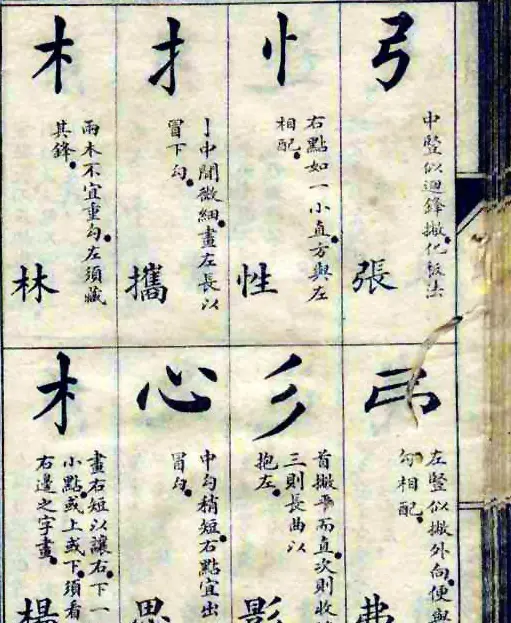 弓
中豎似迴鋒撇化板法
張
忄
右點如一小直方與左
相配
性
扌
亅中間微細畫左長以
冒下勾
攜
木
兩木不宜重勾左須藏
其鋒
林
左豎似撇外向便與
勾相配
弗
彡
首撇平而直次則收
三則長曲以
抱左
影
心
中勾稍短右點宜出
冒勾
思
木
畫右短以讓右下一
小點或上或下須看
右邊之字畫
楊